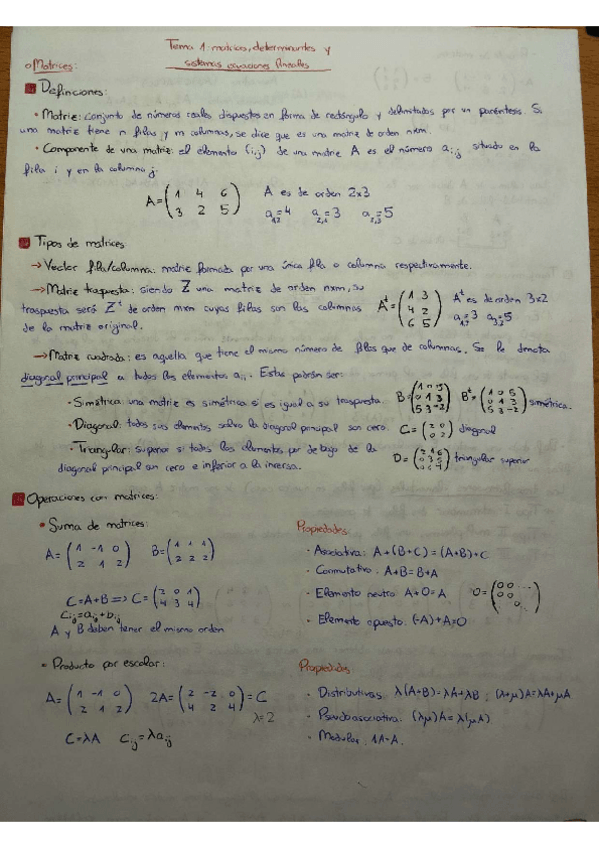 Tema 1: matrices, determinantes y
sistemas ecuaciones lineales
Matrices:
Definiciones:
• Matriz: conjunto de números reales dispuestos en forma de rectángulo y delimitados por un paréntesis. Si
una matriz tiene n filas y m columnas, se dice que es una matriz de orden nxm.
• Componente de una matriz: el elemento (i,j) de una matriz A es el número a_{i,j} situado en la
fila i y en la columna j.
A=(1 4 6 / 3 2 5) A es de orden 2x3
a_{1,2}=4 a_{2,1}=3 a_{2,3}=5
Tipos de matrices
→ Vector fila/columna: matriz formada por una única fila o columna respectivamente.
→ Matriz traspuesta: siendo Z una matriz de orden nxm, su
traspuesta será Z^t de orden mxn cuyas filas son las columnas
de la matriz original.
A^t=(1 3 / 4 2 / 6 5) A^t es de orden 3x2
a_{1,2}=3 a_{3,2}=5
→ Matriz cuadrada: es aquella que tiene el mismo número de filas que de columnas. Se le denota
diagonal principal a todos los elementos a_{ii}. Estas podrán ser:
• Simétrica: una matriz es simétrica si es igual a su traspuesta. B=(1 0 5 / 0 1 3 / 5 3 -2) B^t=(1 0 5 / 0 1 3 / 5 3 -2) simétrica.
• Diagonal: todos sus elementos salvo la diagonal principal son cero. C=(2 0 / 0 2) diagonal
• Triangular: superior si todos los elementos por debajo de la
diagonal principal son cero e inferior a la inversa.
triangular superior
Operaciones con matrices:
• Suma de matrices:
A=(1 -1 0 / 2 1 2) B=(1 1 1 / 2 2 2)
C=A+B => C=(2 0 1 / 4 3 4)
C_{ij}=a_{ij}+b_{ij}
A y B deben tener el mismo orden
Propiedades
· Asociativa: A+(B+C)=(A+B)+C
· Conmutativa: A+B=B+A
· Elemento neutro: A+O=A
· Elemento opuesto: (-A)+A=O
• Producto por escalar:
A=(1 -1 0 / 2 1 2) 2A=(2 -2 0 / 4 2 4)=C
λ=2
C=λA C_{ij}=λa_{ij}
Propiedades
· Distributivas: λ(A+B)=λA+λB ; (λ+μ)A=λA+μA
· Pseudoasociativa: (λμ)A=λ(μA)
· Modular: 1A=A.